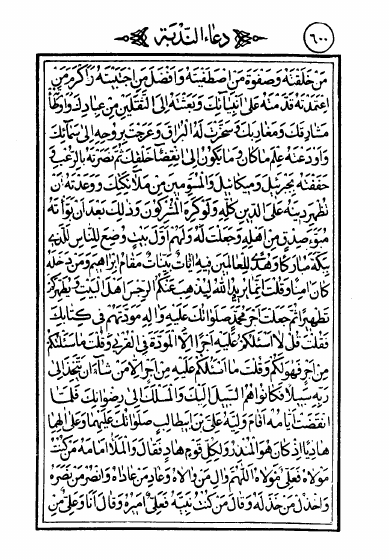 ٦٠٠
دعاء الندبة
مَنْ خَلَقْتَهُ وَصَفْوَةَ مَنِ اصْطَفَيْتَهُ وَاَفْضَلَ مَنِ اجْتَبَيْتَهُ وَاَكْرَمَ مَنِ
اعْتَمَدْتَهُ قَدَّمْتَهُ عَلى اَنْبِيآئِكَ وَبَعَثْتَهُ اِلَى الثَّقَلَيْنِ مِنْ عِبادِكَ وَاَوْطَاْتَهُ
مَشارِقَكَ وَمَغارِبَكَ وَسَخَّرْتَ لَهُ الْبُراقَ وَعَرَجْتَ بِرُوحِهِ اِلى سَمآئِكَ
وَاَوْدَعْتَهُ عِلْمَ ما كانَ وَما يَكُونُ اِلَى انْقِضآءِ خَلْقِكَ ثُمَّ نَصَرْتَهُ بِالرُّعْبِ وَ
حَفَفْتَهُ بِجَبْرَئيلَ وَميكآئيلَ وَالْمُسَوِّمينَ مِنْ مَلآئِكَتِكَ وَوَعَدْتَهُ اَنْ
تُظْهِرَ دينَهُ عَلَى الدّينِ كُلِّهِ وَلَوْ كَرِهَ الْمُشْرِكُونَ وَذلِكَ بَعْدَ اَنْ بَوَّاْتَهُ
مُبَوَّءَ صِدْقٍ مِنْ اَهْلِهِ وَجَعَلْتَ لَهُ وَلَهُمْ اَوَّلَ بَيْتٍ وُضِعَ لِلنّاسِ لَلَّذى
بِبَكَّةَ مُبارَكًا وَهُدًى لِلْعالَمينَ فيهِ اياتٌ بَيِّناتٌ مَقامُ اِبْراهيمَ وَمَنْ دَخَلَهُ
كانَ امِنًا وَقُلْتَ اِنَّما يُريدُ اللهُ لِيُذْهِبَ عَنْكُمُ الرِّجْسَ اَهْلَ الْبَيْتِ وَيُطَهِّرَكُمْ
تَطْهيرًا ثُمَّ جَعَلْتَ اَجْرَ مُحَمَّدٍ صَلَواتُكَ عَلَيْهِ وَالِهِ مَوَدَّتَهُمْ فى كِتابِكَ
فَقُلْتَ قُلْ لا اَسْئَلُكُمْ عَلَيْهِ اَجْرًا اِلَّا الْمَوَدَّةَ فِى الْقُرْبى وَقُلْتَ ما سَئَلْتُكُمْ
مِنْ اَجْرٍ فَهُوَ لَكُمْ وَقُلْتَ ما اَسْئَلُكُمْ عَلَيْهِ مِنْ اَجْرٍ اِلاّ مَنْ شآءَ اَنْ يَتَّخِذَ اِلى
رَبِّهِ سَبيلًا فَكانُوا هُمُ السَّبيلَ اِلَيْكَ وَالْمَسْلَكَ اِلى رِضْوانِكَ فَلَمَّا
انْقَضَتْ اَيّامُهُ اَقامَ وَلِيَّهُ عَلِىَّ بْنَ اَبيطالِبٍ صَلَواتُكَ عَلَيْهِما وَعَلى الِهِما
هادِيًا اِذْ كانَ هُوَ الْمُنْذِرَ وَلِكُلِّ قَوْمٍ هادٍ فَقالَ وَالْمَلَاُ اَمامَهُ مَنْ كُنْتُ
مَوْلاهُ فَعَلِىٌّ مَوْلاهُ اَللّهُمَّ والِ مَنْ والاهُ وَعادِ مَنْ عاداهُ وَانْصُرْ مَنْ نَصَرَهُ
وَاخْذُلْ مَنْ خَذَلَهُ وَقالَ مَنْ كُنْتُ نَبِيَّهُ فَعَلِىٌّ اَميرُهُ وَقالَ اَنَا وَعَلِىٌّ مِنْ